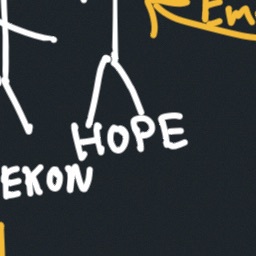 Em
HOPE
EKON